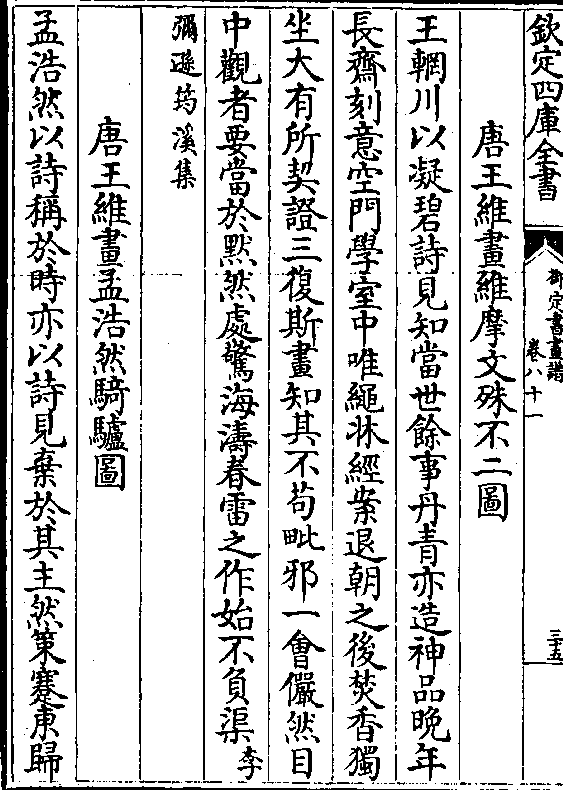 欽定四庫全書
御定書畫譜
卷八十一
三十五
唐王維畫維摩文殊不二圖
王輞川以凝碧詩見知當世餘事丹青亦造神品晚年
長齋刻意空門學室中唯繩牀經案退朝之後焚香獨
坐大有所契證三復斯畫知其不苟毗邪一會儼然目
中觀者要當於默然處驚海濤春雷之作始不負渠李
彌遜筠溪集
唐王維畫孟浩然騎驢圖
孟浩然以詩稱於時亦以詩見棄於其主然策蹇東歸